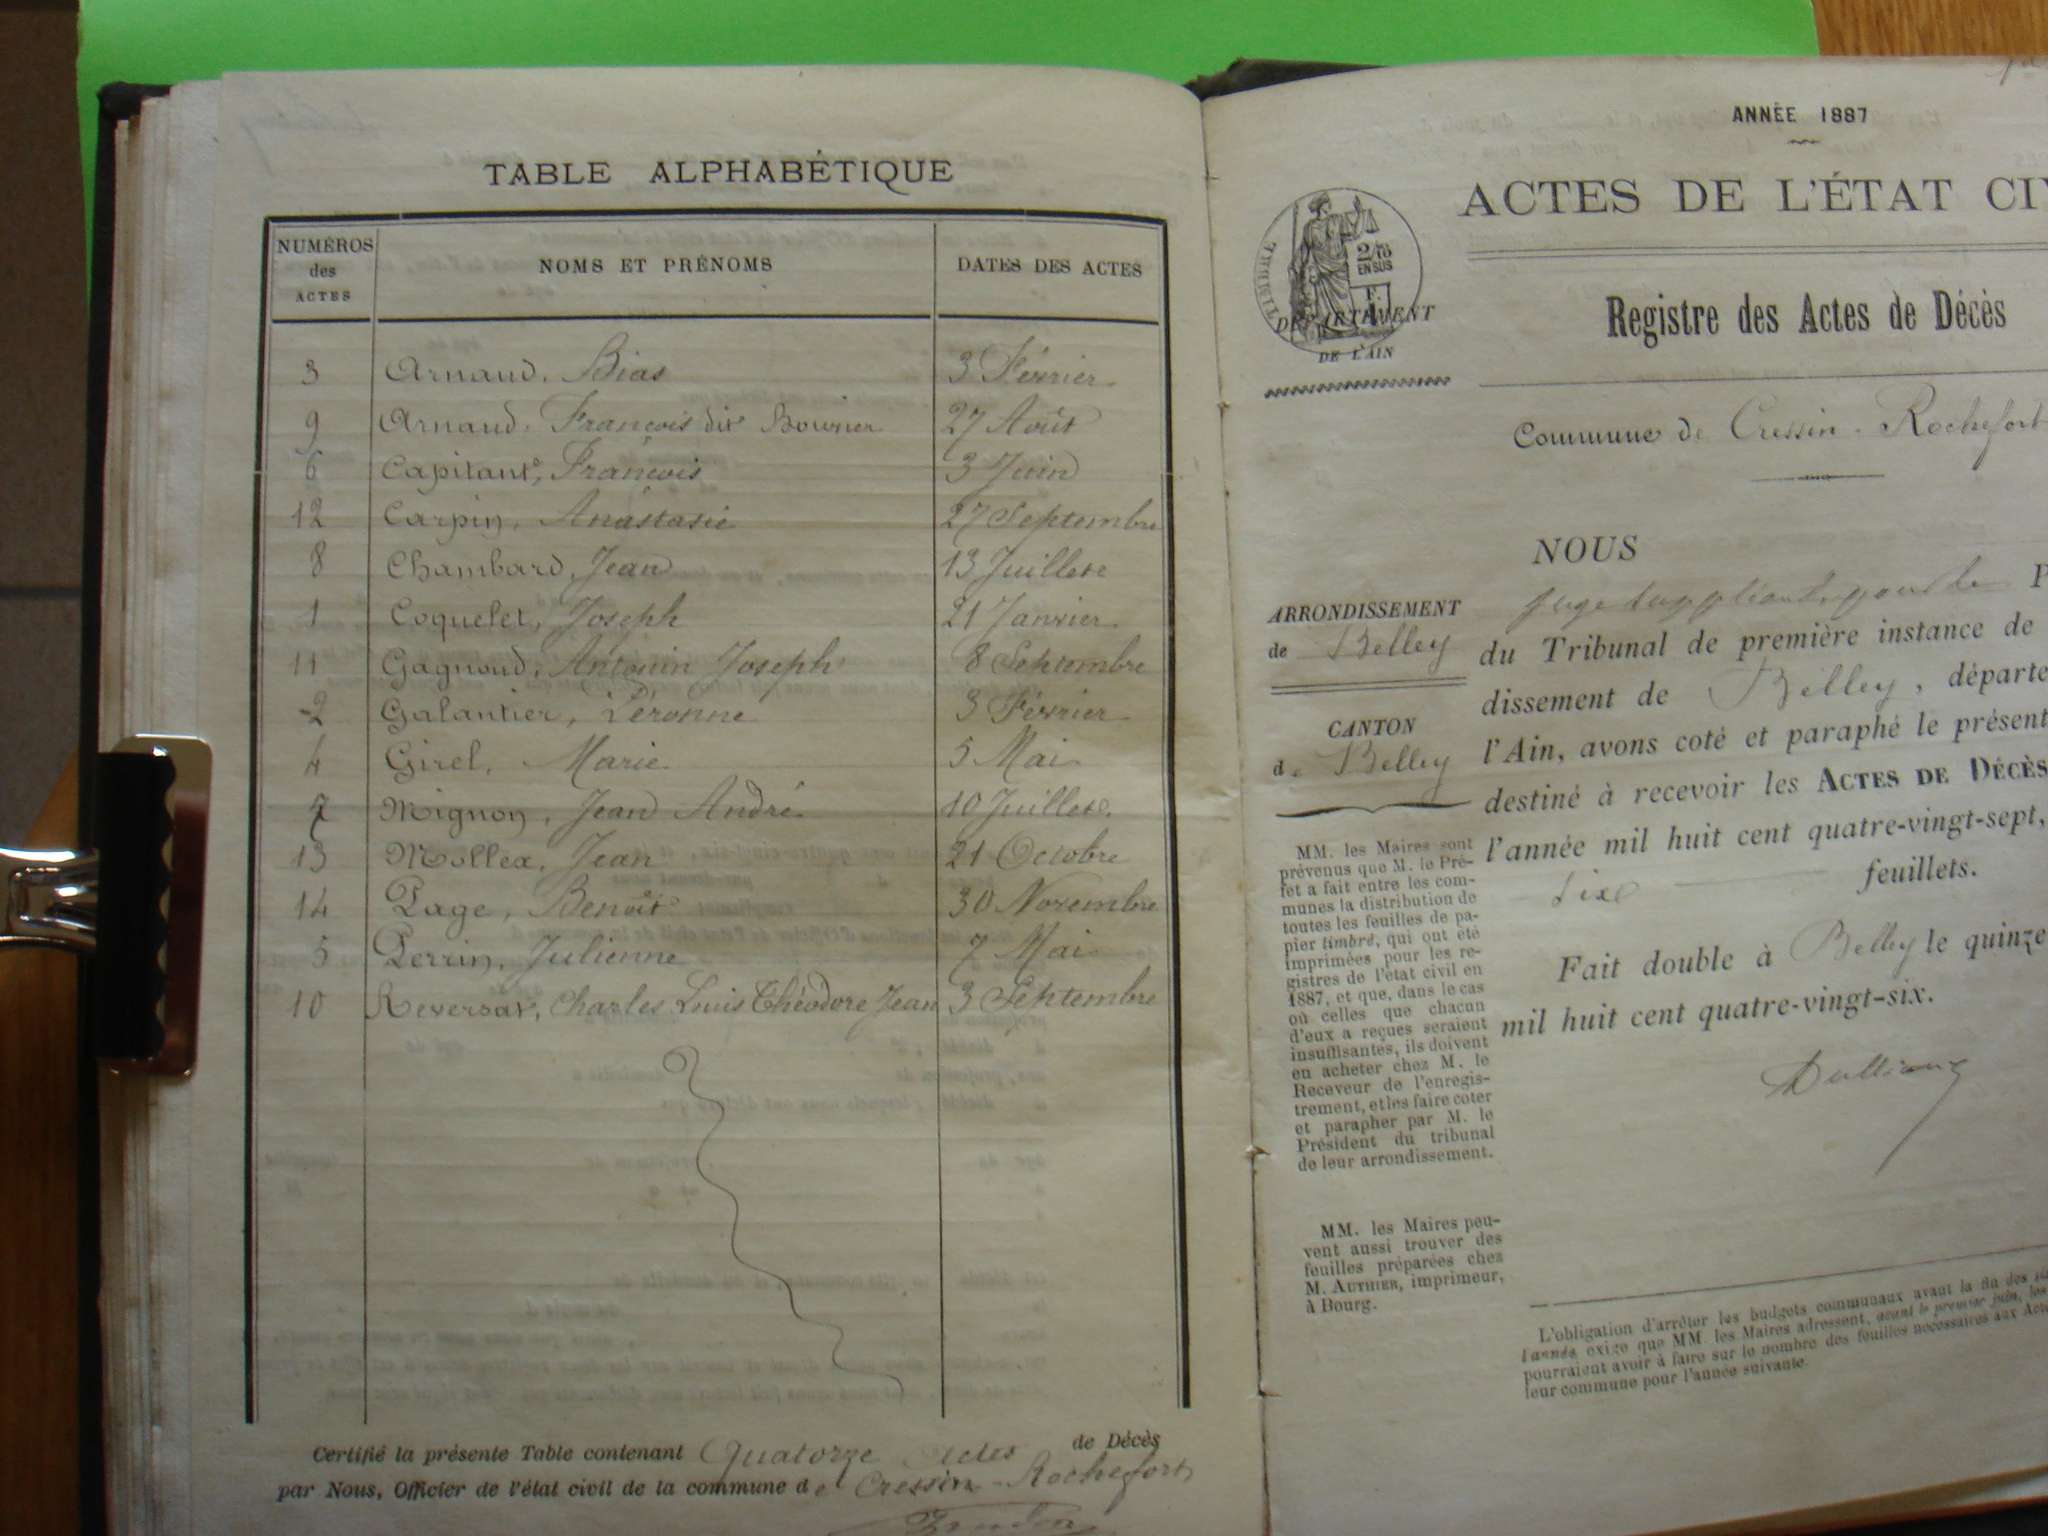 TABLE ALPHABÉTIQUE
NUMÉROS des ACTES NOMS ET PRÉNOMS DATES DES ACTES
3 Arnaud, Bias 3 Février
9 Arnaud, François dit Bouvier 27 Août
6 Capitant, François 3 Juin
12 Carpin, Anastasie 27 Septembre
8 Chambard, Jean 13 Juillet
1 Coquelet, Joseph 21 Janvier
11 Gagnoud, Antonin Joseph 8 Septembre
2 Galantier, Péronne 3 Février
4 Girel, Marie 5 Mai
7 Mignon, Jean André 10 Juillet
13 Mollex, Jean 21 Octobre
14 Page, Benoît 30 Novembre
5 Perrin, Julienne 7 Mai
10 Reversat, Charles Louis Théodore Jean 3 Septembre
Certifié la présente Table contenant Quatorze actes de Décès
par Nous, Officier de l'état civil de la commune de Cressin-Rochefort
ANNÉE 1887
ACTES DE L'ÉTAT CI
TIMBRE
2/10 EN SUS
DÉPARTEMENT
DE L'AIN
Registre des Actes de Décès
Commune de Cressin-Rochefort
ARRONDISSEMENT
de Belley
CANTON
de Belley
MM. les Maires sont
prévenus que M. le Pré-
fet a fait entre les com-
munes la distribution de
toutes les feuilles de pa-
pier timbré, qui ont été
imprimées pour les re-
gistres de l'état civil en
1887, et que, dans le cas
où celles que chacun
d'eux a reçues seraient
insuffisantes, ils doivent
en acheter chez M. le
Receveur de l'enregis-
trement, et les faire coter
et parapher par M. le
Président du tribunal
de leur arrondissement.
MM. les Maires peu-
vent aussi trouver des
feuilles préparées chez
M. AUTHIER, imprimeur,
à Bourg.
NOUS
juge suppléant, pour le P
du Tribunal de première instance de
dissement de Belley, départe
l'Ain, avons coté et paraphé le présent
destiné à recevoir les ACTES DE DÉCÈS
l'année mil huit cent quatre-vingt-sept,
six feuillets.
Fait double à Belley le quinze
mil huit cent quatre-vingt-six.
L'obligation d'arrêter les budgets communaux avant la fin des
l'année exige que MM. les Maires adressent, avant le premier juin, les
pourraient avoir à faire sur le nombre des feuilles nécessaires aux Acte
leur commune pour l'année suivante.